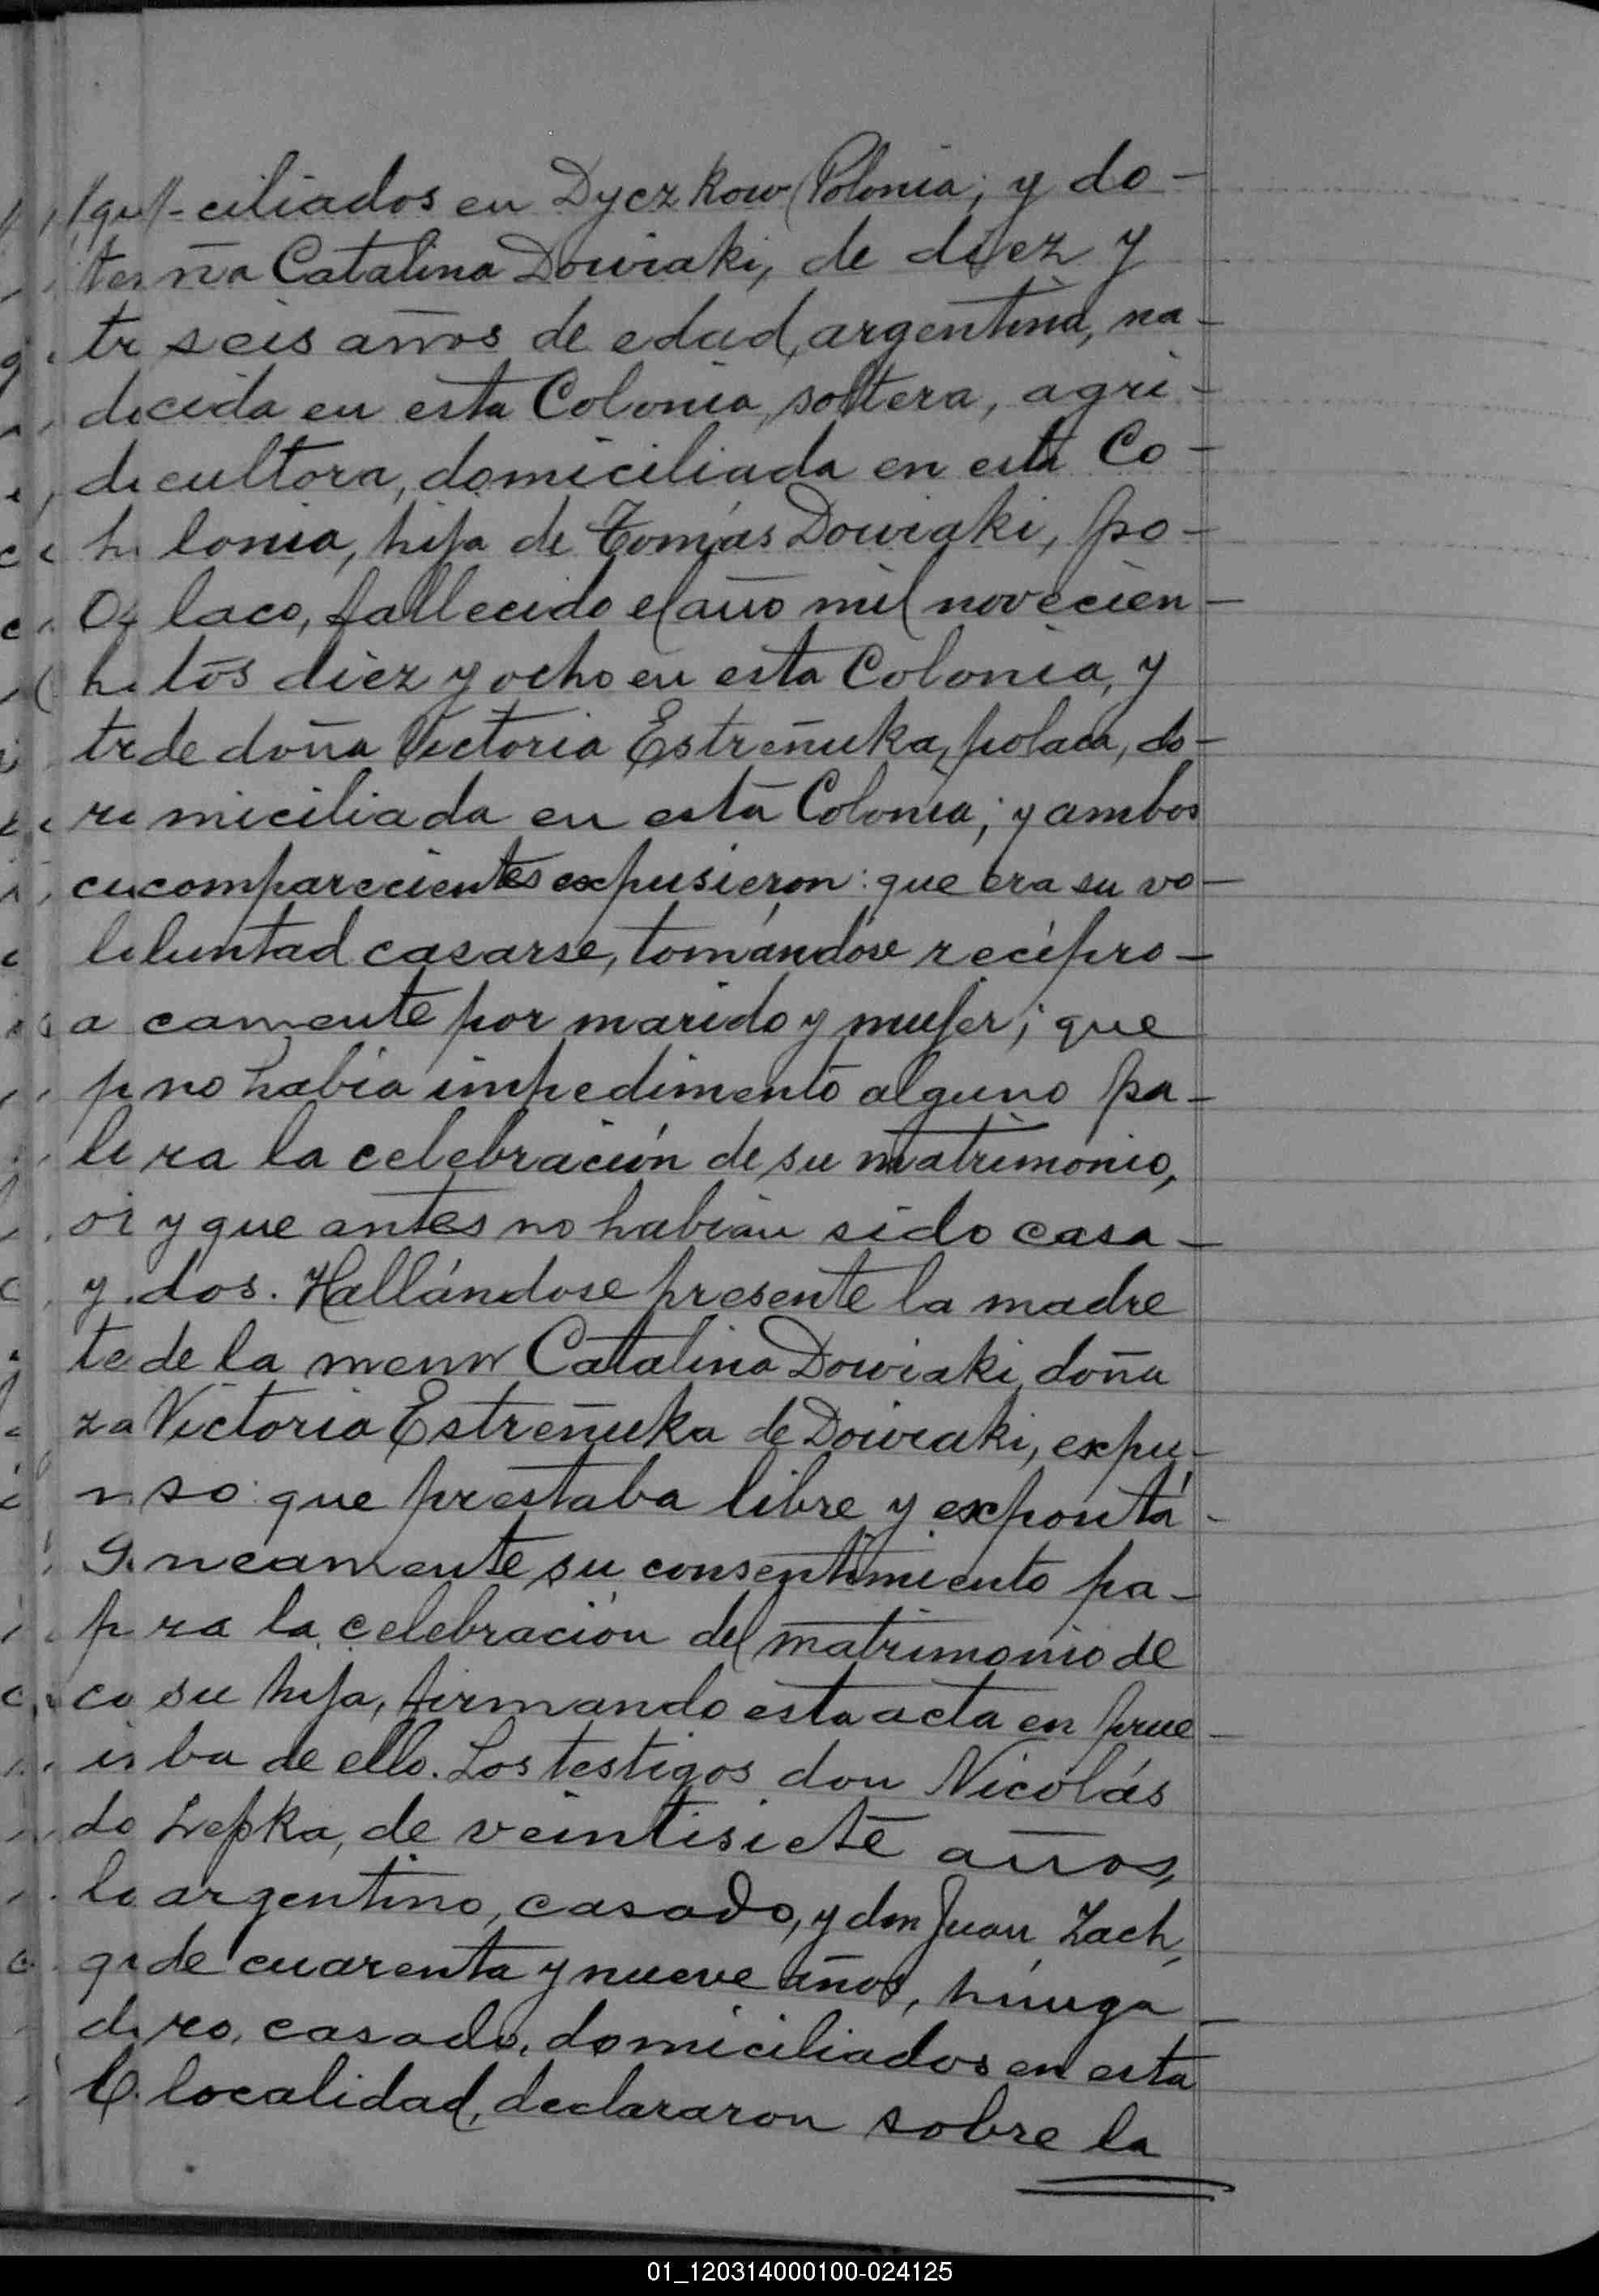 ciliados en Dyczkow (Polonia; y do-
ña Catalina Dowiaki, de diez y
seis años de edad, argentina, na-
cida en esta Colonia, soltera, agri-
cultora, domiciliada en esta Co-
lonia, hija de Tomás Dowiaki, po-
laco, fallecido el año mil novecien-
tos diez y ocho en esta Colonia, y
de doña Victoria Estreñuka, polaca, do-
miciliada en esta Colonia; y ambos
comparecientes expusieron: que era su vo-
luntad casarse, tomándose recípro-
camente por marido y mujer; que
no había impedimento alguno pa-
ra la celebración de su matrimonio,
y que antes no habían sido casa-
dos. Hallándose presente la madre
de la menor Catalina Dowiaki, doña
Victoria Estreñuka de Dowiaki, expu-
so: que prestaba libre y expontá-
neamente su consentimiento pa-
ra la celebración del matrimonio de
su hija, firmando esta acta en prue-
ba de ello. Los testigos don Nicolás
Lepka, de veintisiete años,
argentino, casado, y don Juan Zach,
de cuarenta y nueve años, húnga-
ro, casado, domiciliados en esta
localidad, declararon sobre la
01_120314000100-024125